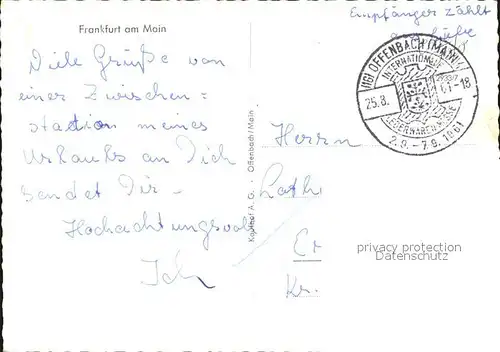 Frankfurt am Main
Empfänger zahlt
Viele Grüße von
einer Zwischen=
station meines
Urlaubs an Dich
sendet Dir -
Hochachtungsvoll
Ich
Kaufhof A. G. · Offenbach/Main
(16) OFFENBACH (MAIN)
INTERNATIONALE
25.8. 61-18
LEDERWARENMESSE
2.9.-7.9.1961
Herrn
Loth
Er
Kr.
privacy protection
Datenschutz